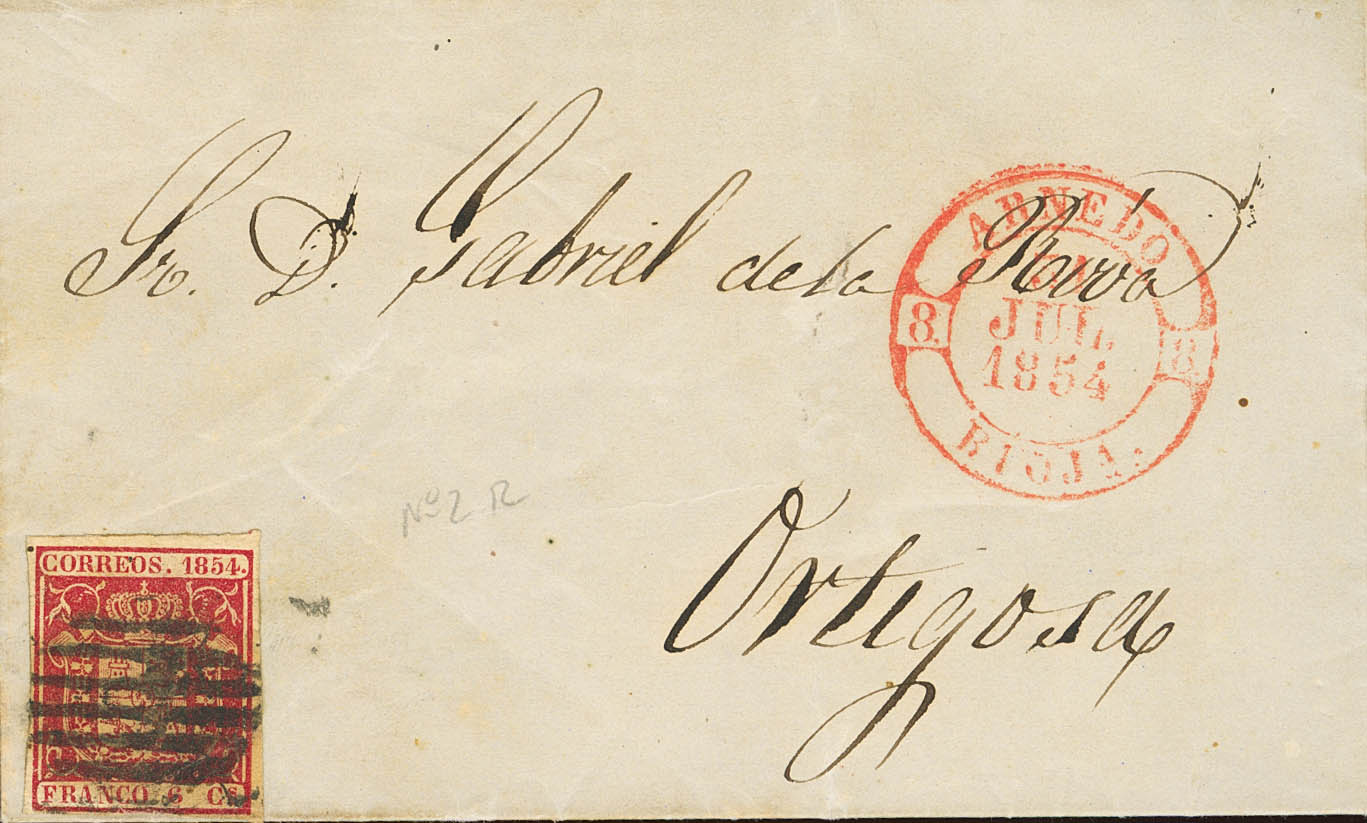 Sr. D. Gabriel de la Riva
ARNEDO
JUL.
1854
8. 8.
RIOJA.
Ortigosa
Nº 2 R
CORREOS. 1854.
FRANCO 6 Cs.